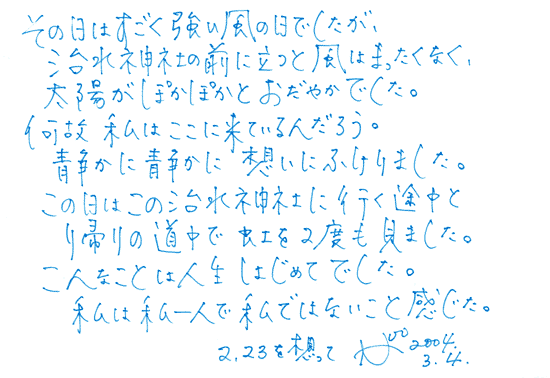 その日はすごく強い風の日でしたが、
治水神社の前に立つと風はまったくなく、
太陽がぽかぽかとおだやかでした。
何故 私はここに来ているんだろう。
静かに静かに 想いにふけりました。
この日はこの治水神社に行く途中と
り帰りの道中で 虹を2度も見ました。
こんなことは人生はじめてでした。
私は私一人で私ではないこと感じた。
2,23を想って 2004.
3.4.